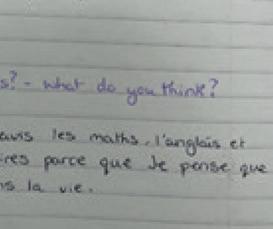 s? - what do you think?
avis les maths, l'anglais et
ires parce que Je pense que
ns la vie.